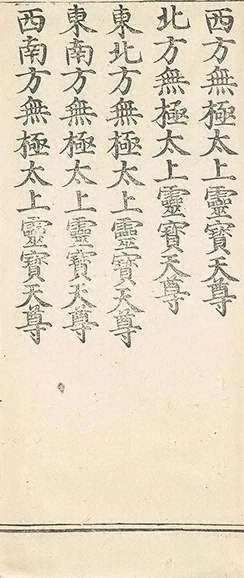 西方無極太上靈寶天尊
北方無極太上靈寶天尊
東北方無極太上靈寶天尊
東南方無極太上靈寶天尊
西南方無極太上靈寶天尊